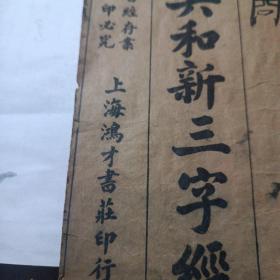 問
共和新三字經
經存案
印必究
上海鴻才書莊印行